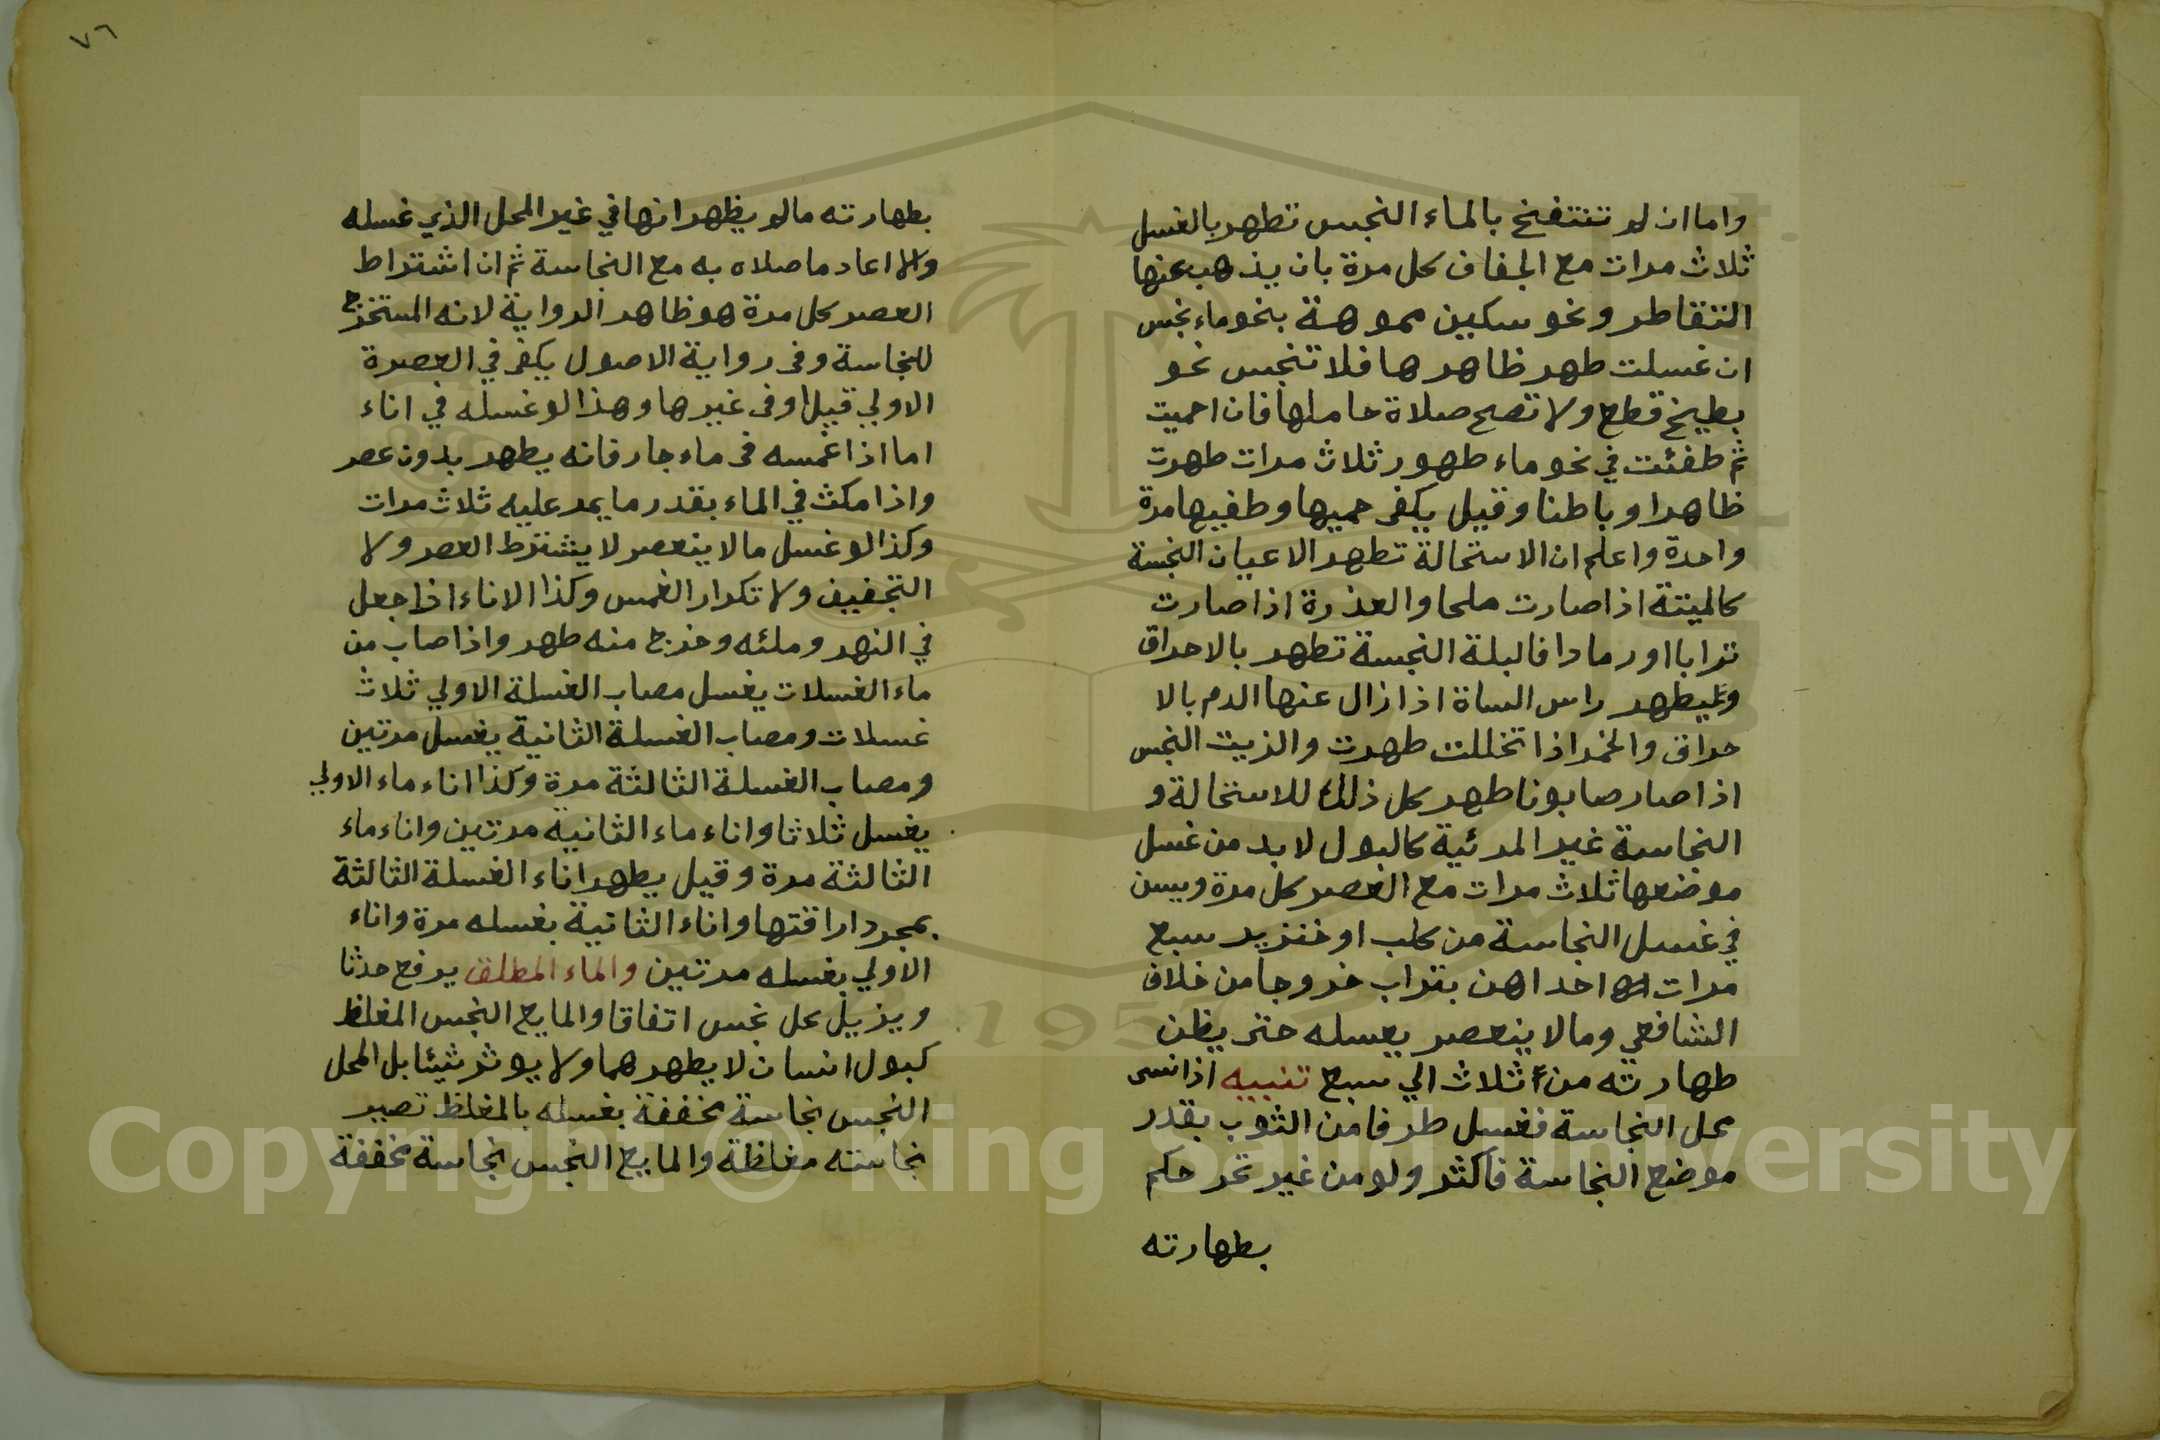 واما ان لو تنتفخ بالماء النجس تطهر بالغسل
ثلاث مرات مع الجفاف كل مرة بان يذهب عنها
التقاطر ونحو سكين مموهة بنحو ماء نجس
ان غسلت طهر ظاهرها فلا تنجس نحو
بطيخ قطع ولا تصح صلاة حاملها فان احميت
ثم طفئت في نحو ماء طهور ثلاث مرات طهرت
ظاهرا وباطنا وقيل يكفي حميها وطفيها مرة
واحدة واعلم ان الاستحالة تطهر الاعيان النجسة
كالميتة اذا صارت ملحا والعذرة اذا صارت
ترابا او رمادا فالبلة النجسة تطهر بالاحراق
ويطهر راس الساة اذا زال عنها الدم بالا
حراق والخمر اذا تخللت طهرت والزيت النجس
اذا صار صابونا طهر كل ذلك للاستحالة و
النجاسة غير المرئية كالبول لا بد من غسل
موضعها ثلاث مرات مع العصر كل مرة ويسن
في غسل النجاسة من كلب او خنزير سبع
مرات احداهن بتراب خروجا من خلاف
الشافعي ومالا ينعصر يغسله حتى يظن
طهارته من ثلاث الي سبع تنبيه اذا نسى
محل النجاسة فغسل طرفا من الثوب بقدر
موضع النجاسة فاكثر ولو من غير تحر حكم
بطهارته
٧٦
بطهارته مالو يظهر انها في غير المحل الذي غسله
والا اعاد ما صلاه به مع النجاسة ثم ان اشتراط
العصر كل مرة هو ظاهر الرواية لانه المستخرج
للنجاسة وفى رواية الاصول يكفى في العصرة
الاولي قيل وفى غيرها وهذا لو غسله في اناء
اما اذا غمسه فى ماء جار فانه يطهر بدون عصر
واذا مكث في الماء بقدر ما يمر عليه ثلاث مرات
وكذا لو غسل مالا ينعصر لا يشترط العصر ولا
التجفيف ولا تكرار الغمس وكذا الاناء اذا جعل
في النهر وملئه وخرج منه طهر واذا صاب من
ماء الغسلات يغسل مصاب الغسلة الاولي ثلاث
غسلات ومصاب الغسلة الثانية يغسل مرتين
ومصاب الغسلة الثالثة مرة وكذا اناء ماء الاولي
يغسل ثلاثا واناء ماء الثانية مرتين واناء ماء
الثالثة مرة وقيل يطهر اناء الغسلة الثالثة
بمجرد اراقتها واناء الثانية بغسله مرة واناء
الاولي بغسله مرتين والماء المطلق يرفع حدثا
ويزيل كل نجس اتفاقا والمايع النجس المغلظ
كبول انسان لا يطهر هما ولا يوثر شيئا بل المحل
النجس نجاسة مخففة بغسله بالمغلظ تصير
نجاسته مغلظة والمايع النجس نجاسة مخففة
1957
Copyright © King Saud University